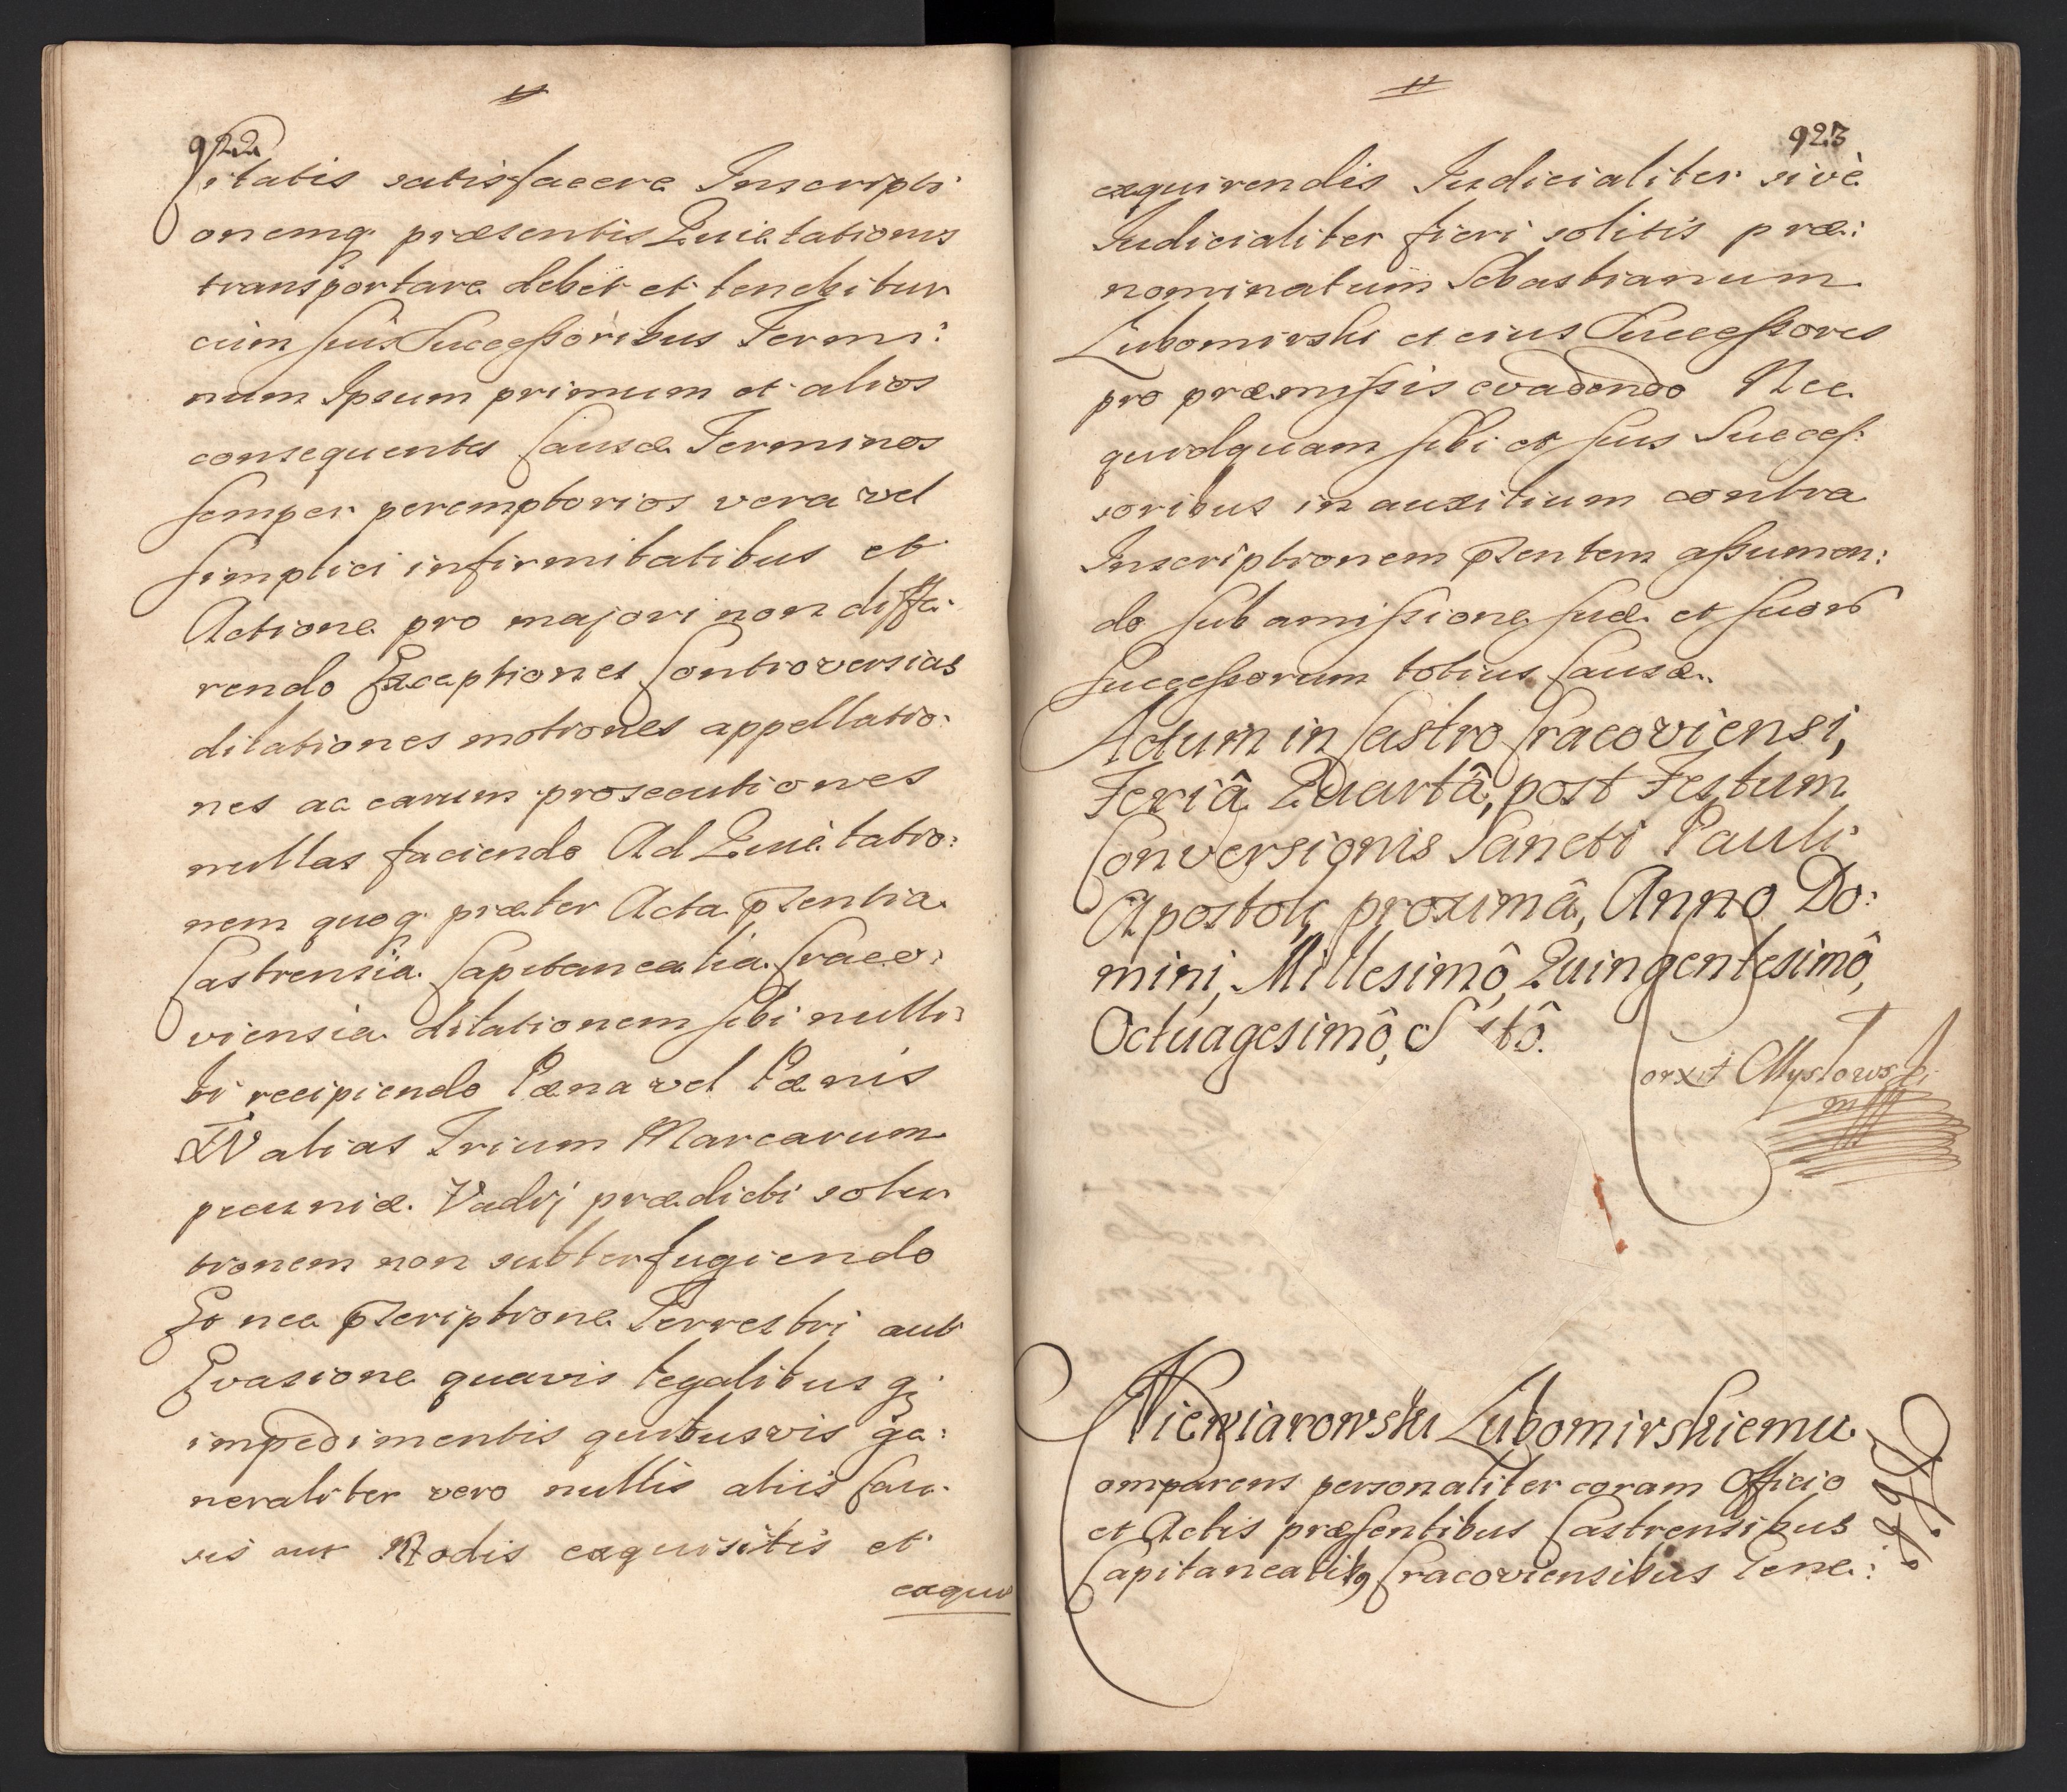 922
itatis satisfacere Inscripti
onemq præsentis Quietationis
transportare debet et tenebitur
cum suis Successoribus Termi:
num Ipsum primum et alios
consequentes Causæ Terminos
semper peremptorios vera vel
simplici infirmitatibus et
Actione pro majori non diffe:
rendo Exceptiones Controversias
dilationes motiones appellatio:
nes ac earum prosecutiones
nullas faciendo Ad Quietatio:
nem quoq præter Acta pzentia
Castrensia Capitanealia Craco:
viensia dilationem sibi nulli:
bi recipiendo Pæna vel Pænis
XIV alias Trium Marcarum
pecuniæ Vadij prædicti solu
tionem non subterfugiendo
Eo nec pzcriptione Terrestri aut
Evasione quavis legalibusq;
impedimentis quibusvis ge:
neraliter vero nullis aliis Cau:
sis aut Modis exquisitis et
exqui
923
exquirendis Iudicialiter sivè
Iudicialiter fieri solitis præ:
nominatum Sebastianum
Lubomirski et eius Successores
pro præmissis evadendo Nec
quidquam sibi et suis Succes:
soribus in auxilium contra
Inscriptionem pzentem assumen:
do sub amissione suæ et suor
Successorum totius Causæ.
Actum in Castro Cracoviensi,
Feriâ Quartâ, post Festum
Conversionis Sancti Pauli
Apostoli, proximâ, Anno Do:
mini, Millesimô, Quingentesimô,
Octuagesimô, S tô.
Corxit Mysłowski
mpp
Niewiarowski Lubomirskiemu
omparens personaliter coram Officio
et Actis præsentibus Castrensibus
Capitanealib9 Cracoviensibus Gene: